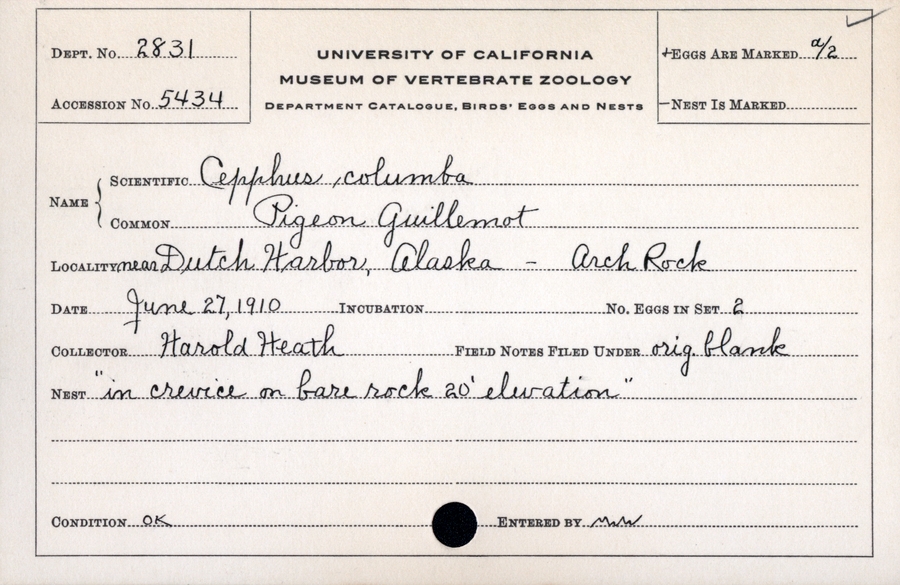 Dept. No. 2831
Accession No. 5434
UNIVERSITY OF CALIFORNIA
MUSEUM OF VERTEBRATE ZOOLOGY
Department Catalogue, Birds' Eggs and Nests
+Eggs Are Marked a/2
–Nest Is Marked
Name
Scientific Cepphus columba
Common Pigeon Guillemot
Locality near Dutch Harbor, Alaska - Arch Rock
Date June 27, 1910 Incubation No. Eggs in Set 2
Collector Harold Heath Field Notes Filed Under orig. blank
Nest "in crevice on bare rock 20' elevation"
Condition OK Entered by